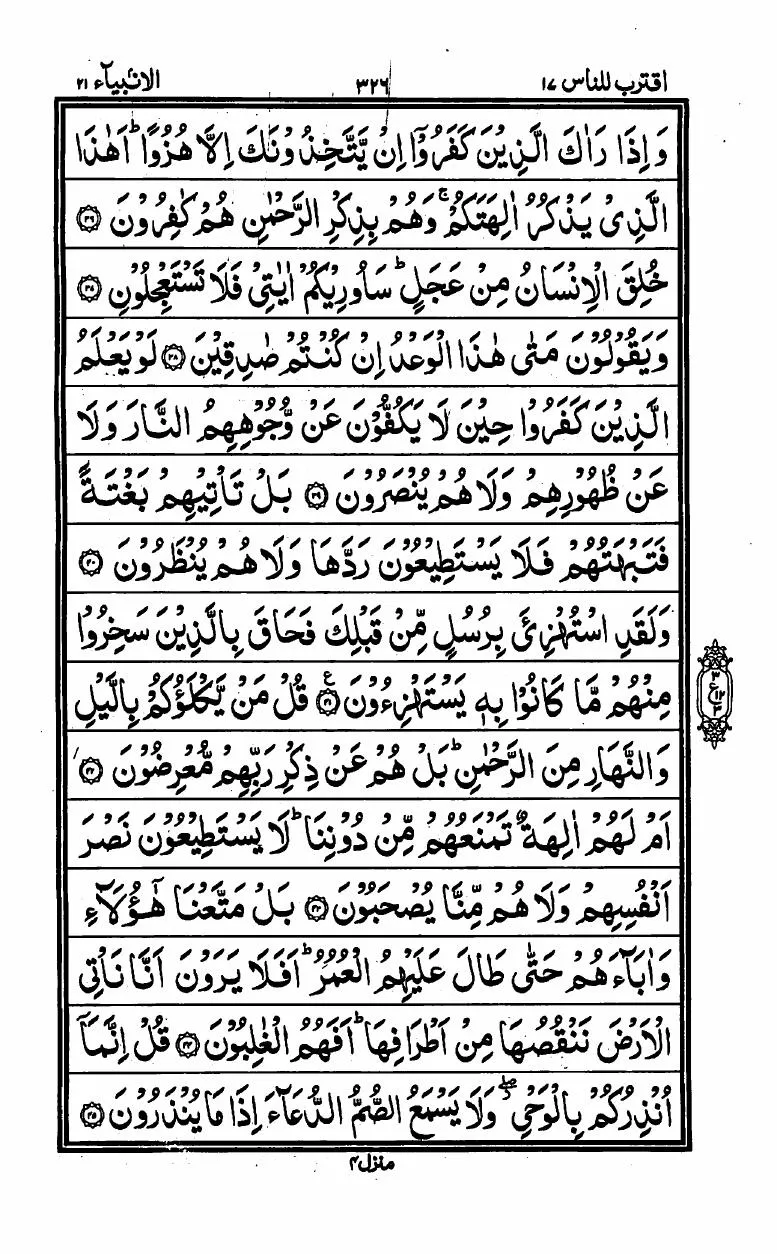 اقترب للناس ١٧ ٣٢٦ الانبیآء ٢١
وَاِذَا رَاٰكَ الَّذِیْنَ كَفَرُوْۤا اِنْ یَّتَّخِذُوْنَكَ اِلَّا هُزُوًا ؕ اَهٰذَا
الَّذِیْ یَذْكُرُ اٰلِهَتَكُمْ ۚ وَهُمْ بِذِكْرِ الرَّحْمٰنِ هُمْ كٰفِرُوْنَ ﴿۳۶﴾
خُلِقَ الْاِنْسَانُ مِنْ عَجَلٍ ؕ سَاُورِیْكُمْ اٰیٰتِیْ فَلَا تَسْتَعْجِلُوْنِ ﴿۳۷﴾
وَیَقُوْلُوْنَ مَتٰی هٰذَا الْوَعْدُ اِنْ كُنْتُمْ صٰدِقِیْنَ ﴿۳۸﴾ لَوْ یَعْلَمُ
الَّذِیْنَ كَفَرُوْا حِیْنَ لَا یَكُفُّوْنَ عَنْ وُّجُوْهِهِمُ النَّارَ وَلَا
عَنْ ظُهُوْرِهِمْ وَلَا هُمْ یُنْصَرُوْنَ ﴿۳۹﴾ بَلْ تَاْتِیْهِمْ بَغْتَةً
فَتَبْهَتُهُمْ فَلَا یَسْتَطِیْعُوْنَ رَدَّهَا وَلَا هُمْ یُنْظَرُوْنَ ﴿۴۰﴾
وَلَقَدِ اسْتُهْزِئَ بِرُسُلٍ مِّنْ قَبْلِكَ فَحَاقَ بِالَّذِیْنَ سَخِرُوْا
مِنْهُمْ مَّا كَانُوْا بِهٖ یَسْتَهْزِءُوْنَ ﴿۴۱﴾ ع قُلْ مَنْ یَّكْلَؤُكُمْ بِالَّیْلِ
وَالنَّهَارِ مِنَ الرَّحْمٰنِ ؕ بَلْ هُمْ عَنْ ذِكْرِ رَبِّهِمْ مُّعْرِضُوْنَ ﴿۴۲﴾
اَمْ لَهُمْ اٰلِهَةٌ تَمْنَعُهُمْ مِّنْ دُوْنِنَا ؕ لَا یَسْتَطِیْعُوْنَ نَصْرَ
اَنْفُسِهِمْ وَلَا هُمْ مِّنَّا یُصْحَبُوْنَ ﴿۴۳﴾ بَلْ مَتَّعْنَا هٰۤؤُلَآءِ
وَاٰبَآءَهُمْ حَتّٰی طَالَ عَلَیْهِمُ الْعُمُرُ ؕ اَفَلَا یَرَوْنَ اَنَّا نَاْتِی
الْاَرْضَ نَنْقُصُهَا مِنْ اَطْرَافِهَا ؕ اَفَهُمُ الْغٰلِبُوْنَ ﴿۴۴﴾ قُلْ اِنَّمَاۤ
اُنْذِرُكُمْ بِالْوَحْیِ ۖ وَلَا یَسْمَعُ الصُّمُّ الدُّعَآءَ اِذَا مَا یُنْذَرُوْنَ ﴿۴۵﴾
٣
ع ١٢
٣
منزل ۴